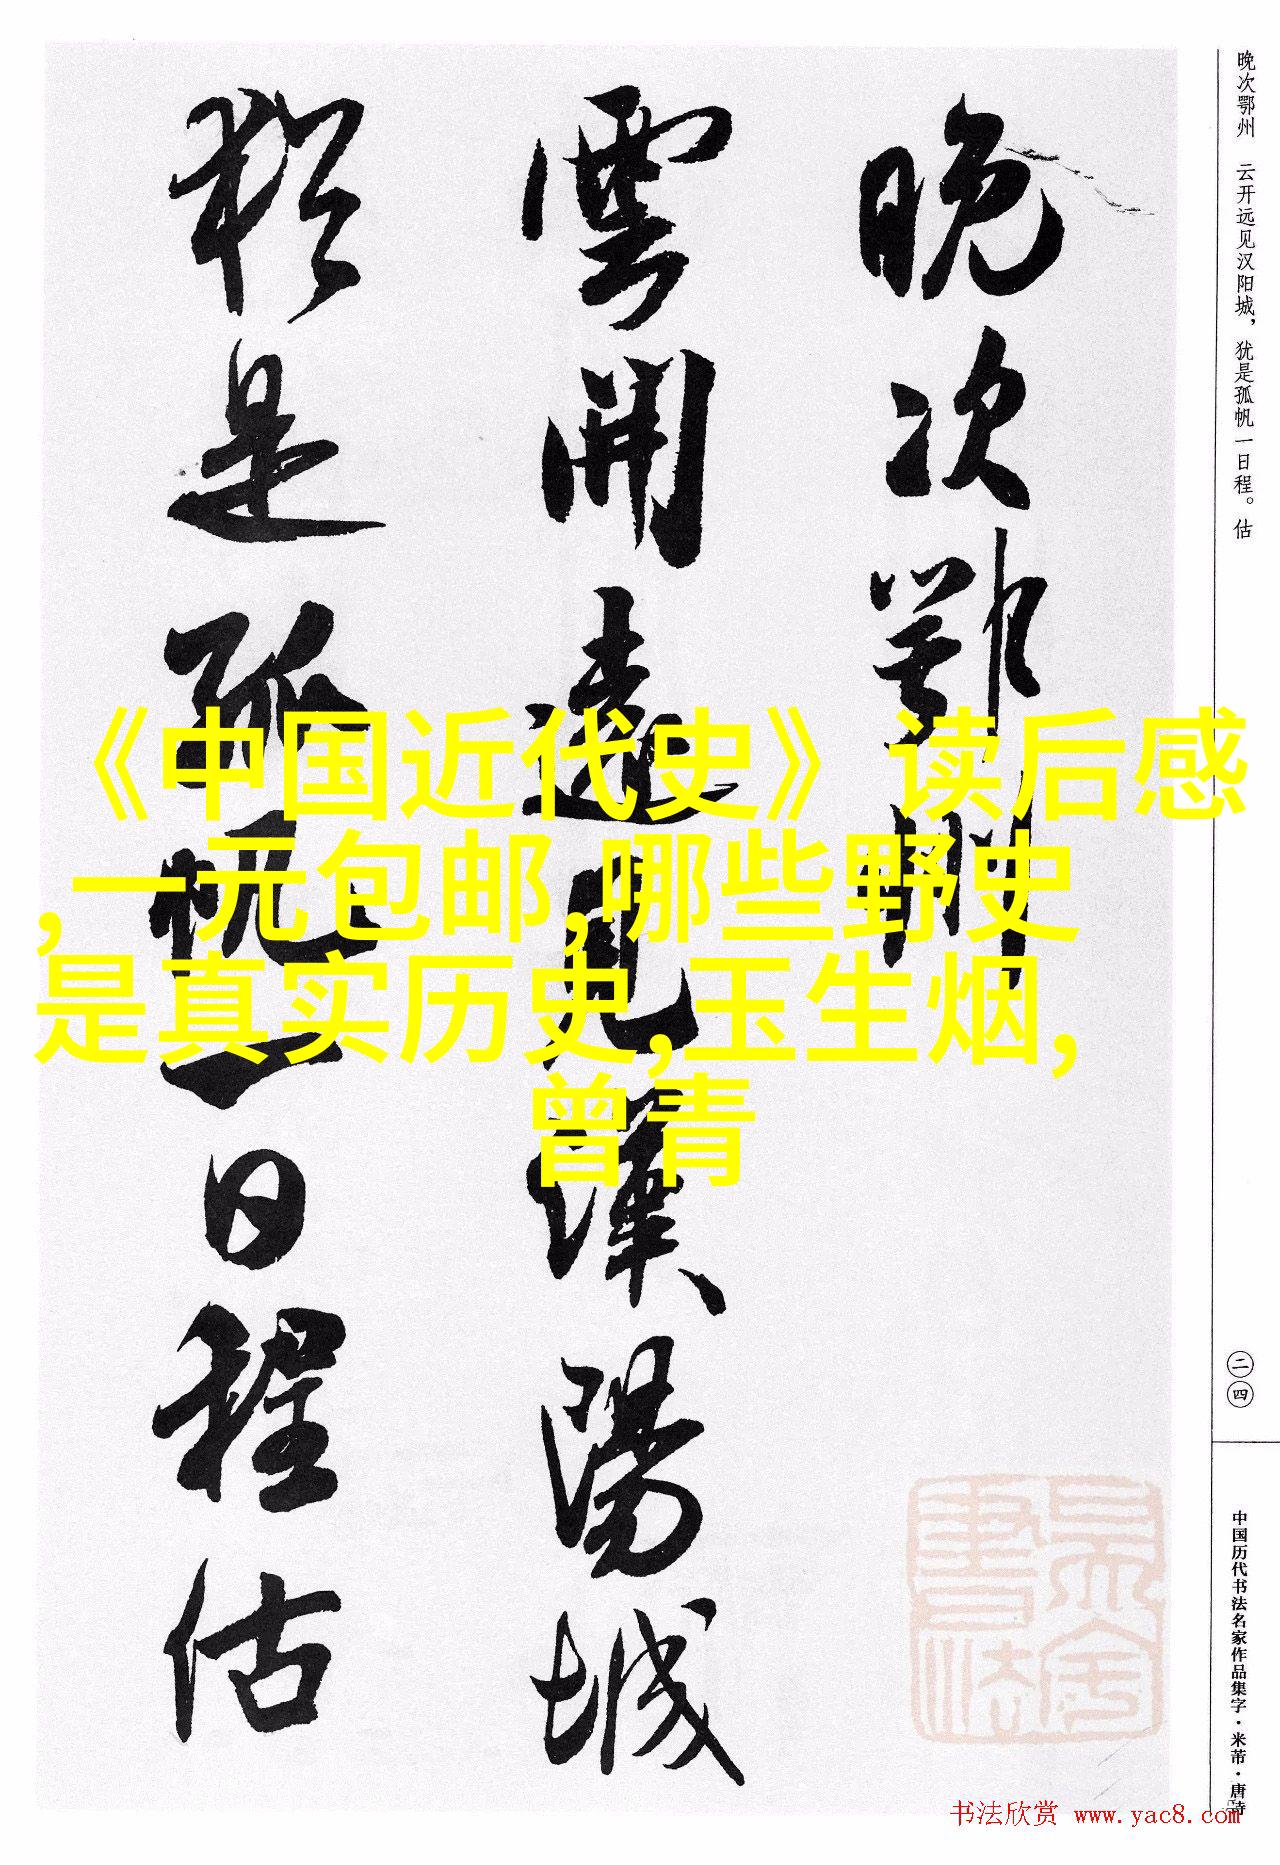 晚次鄂州
雲開遠見漢陽城
猶是孤帆一日程估
晚次鄂州 云开远见汉阳城，犹是孤帆一日程。估
二四
中国历代书法名家作品集字·米芾·唐诗
《中国近代史》读后感
,一元包邮,哪些野史
是真实历史,玉生烟,
曾青
书法欣赏 www.yac8.com